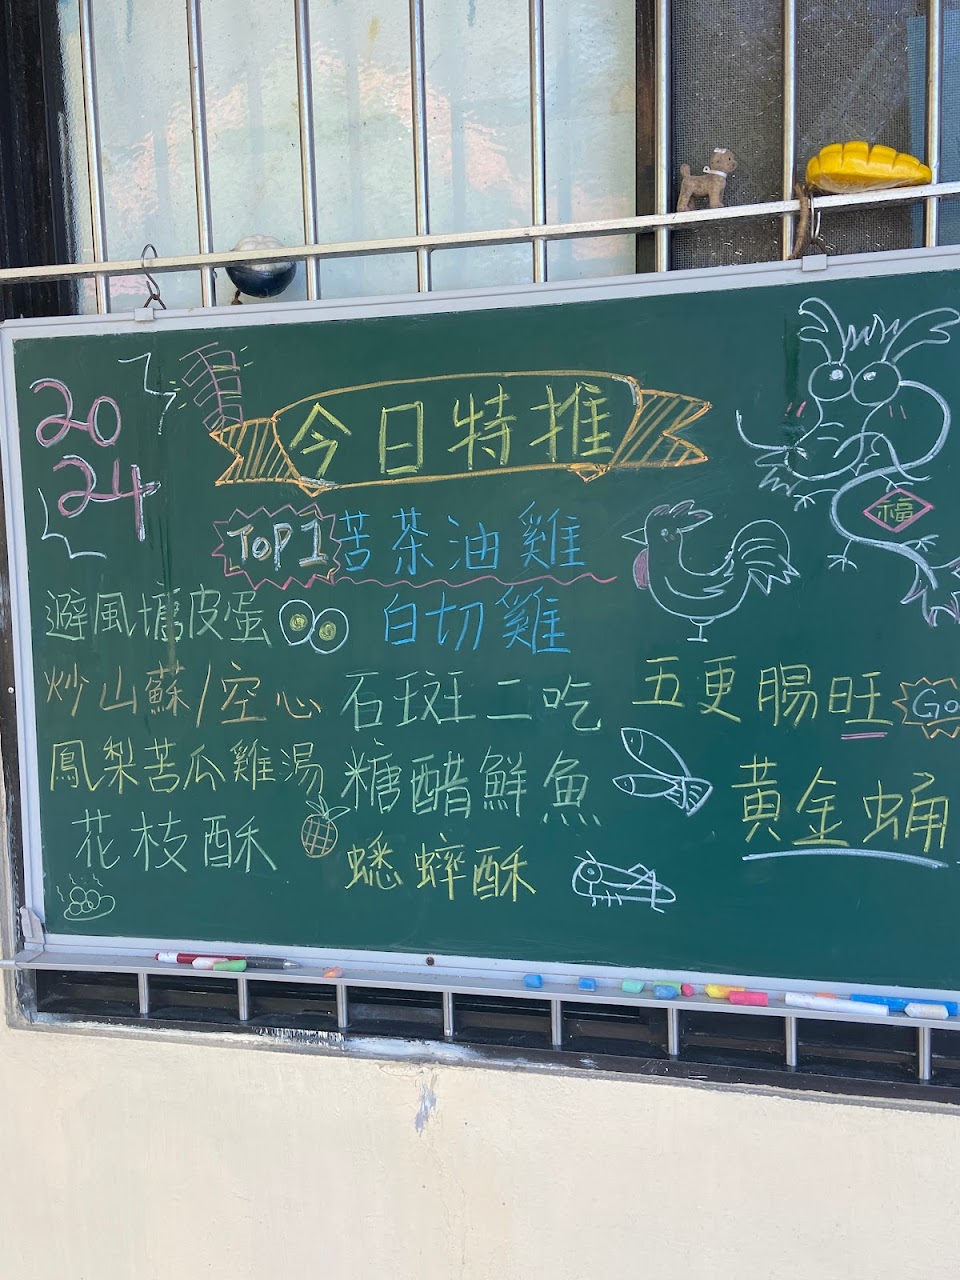 20
24
今日特推
福
TOP 1 苦茶油雞
白切雞
避風塘皮蛋
炒山蘇/空心
鳳梨苦瓜雞湯
花枝酥
石斑二吃
糖醋鮮魚
蟋蟀酥
五更腸旺
Go
黃金蛹